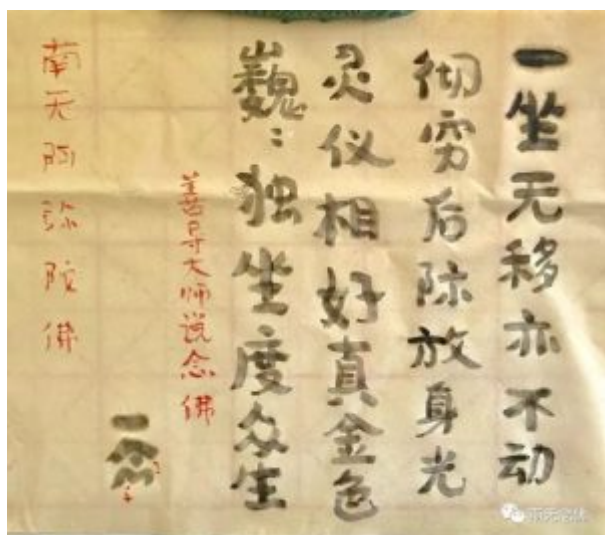 一坐无移亦不动
彻穷后际放身光
灵仪相好真金色
巍：独坐度众生
善导大师说念佛
南无阿弥陀佛